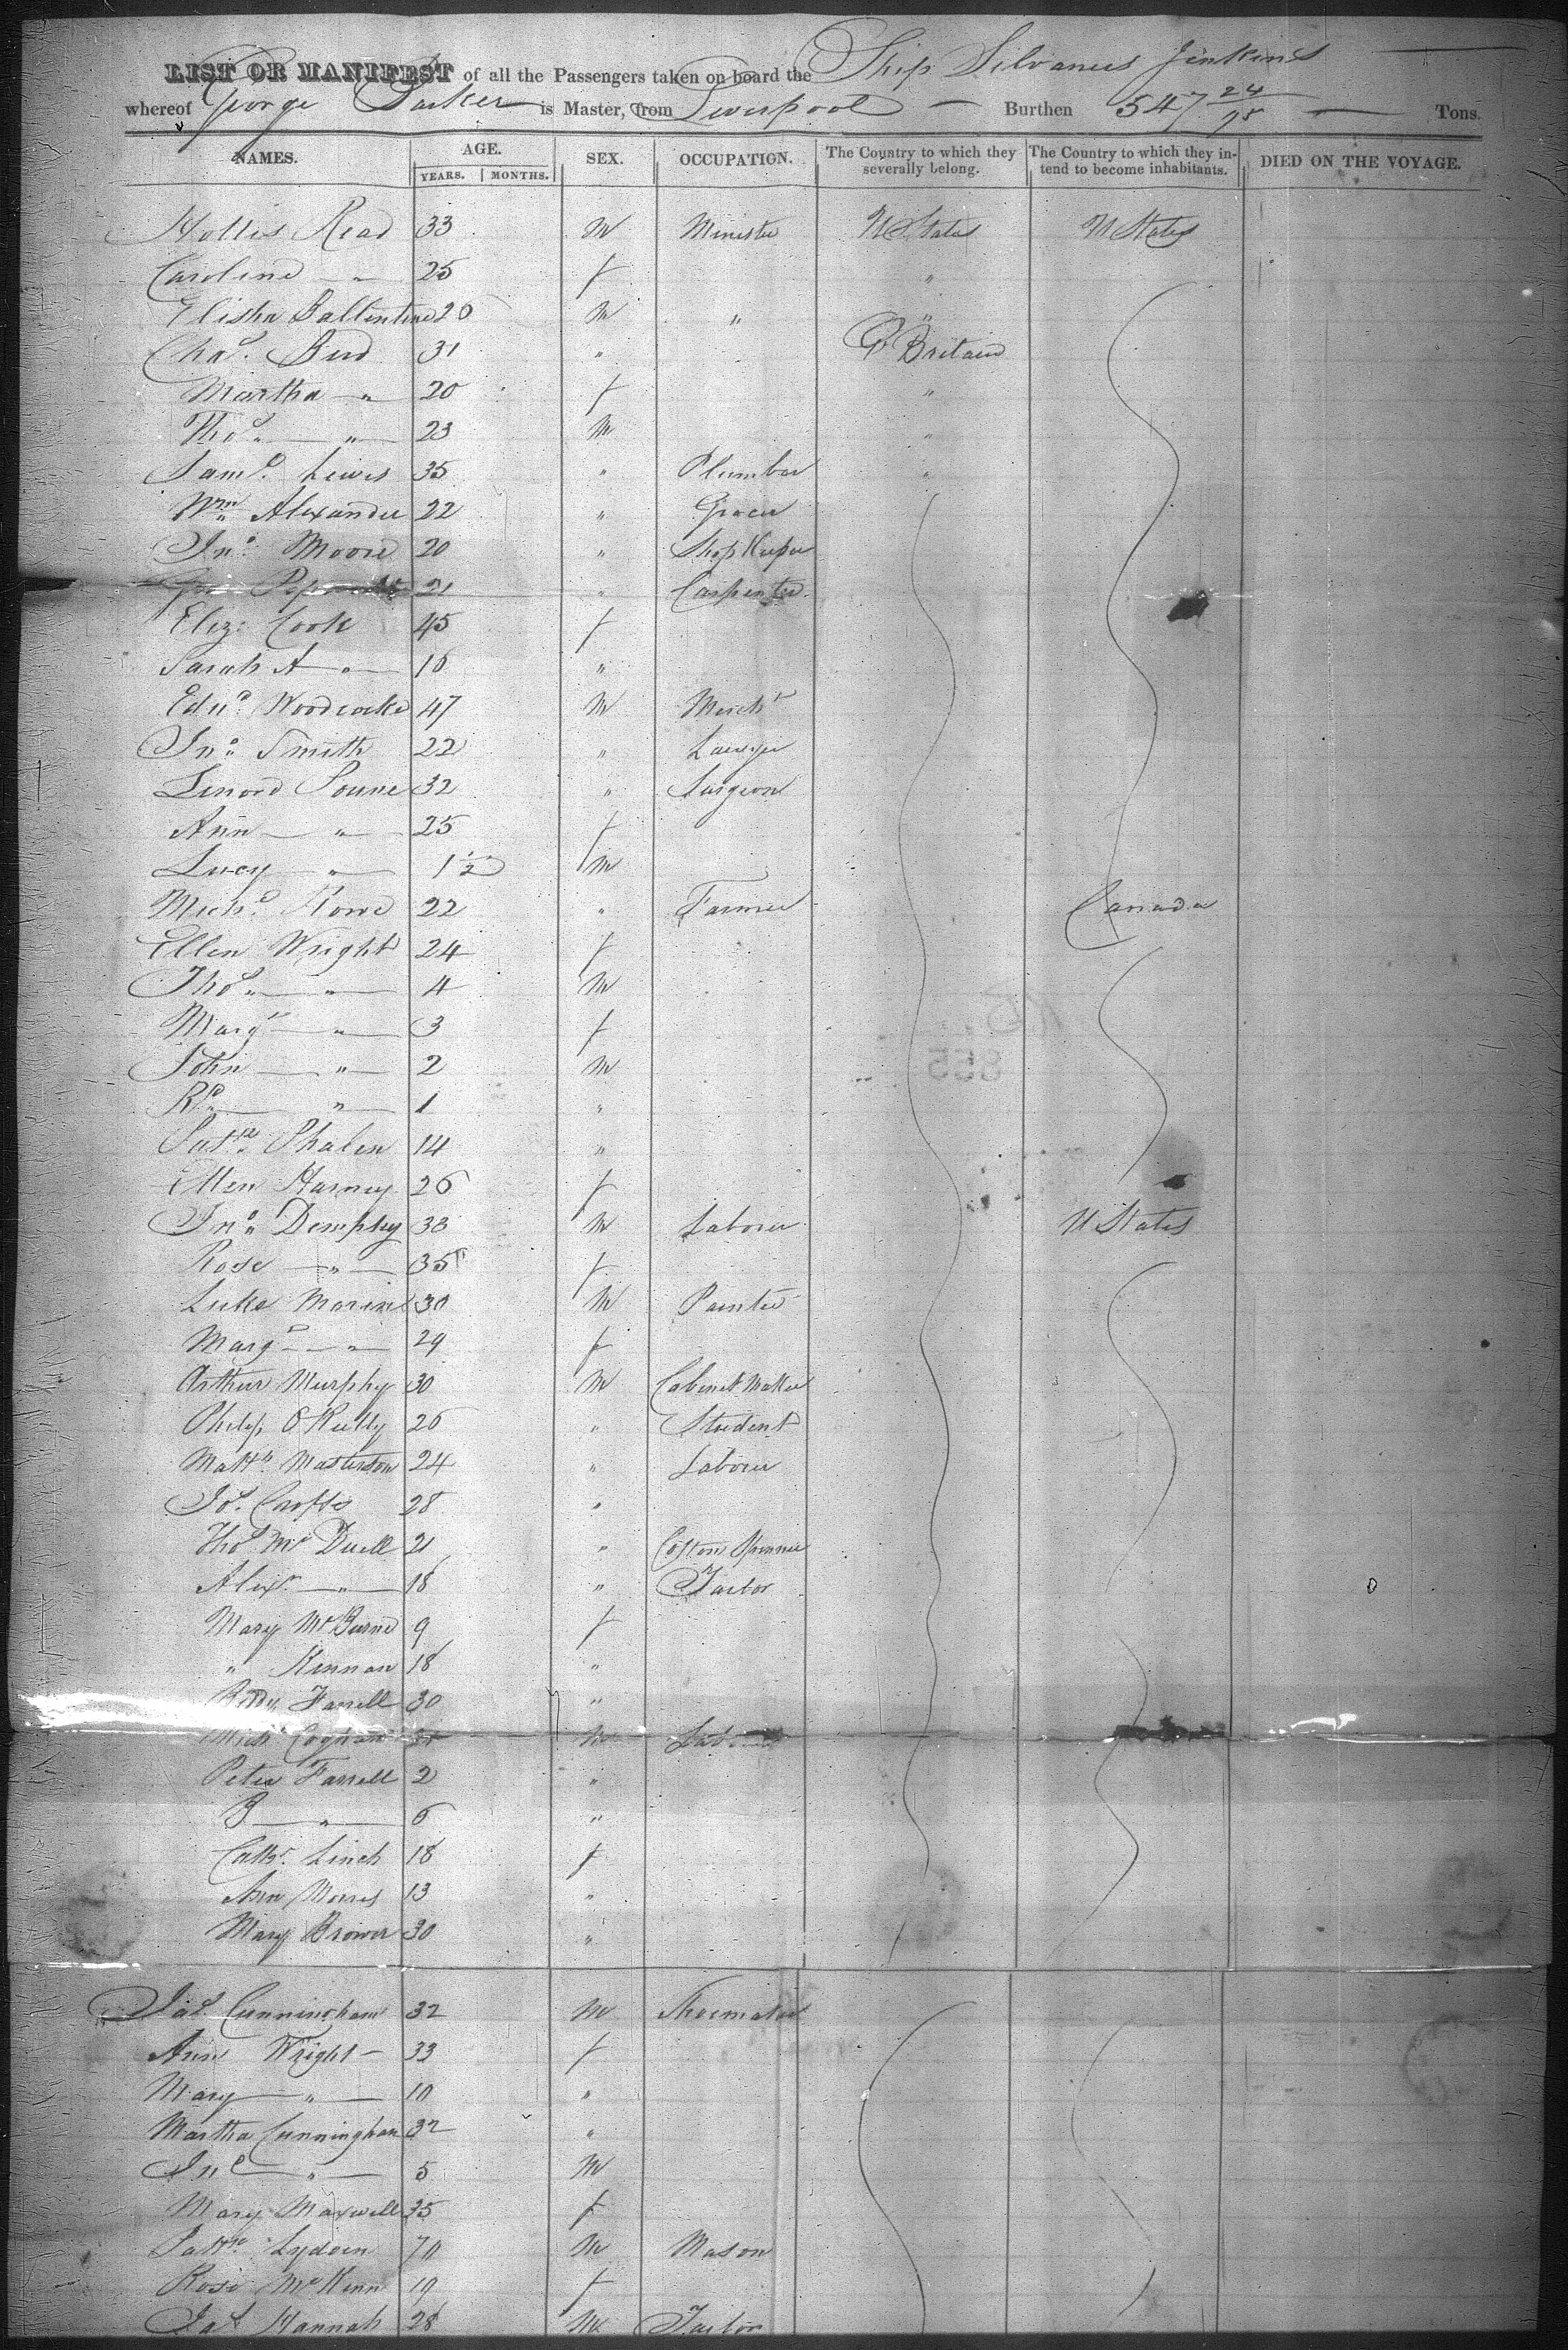 LIST OR MANIFEST of all the Passengers taken on board the Ship Silvanus Jenkins
whereof George Parker is Master, from Liverpool Burthen 547 24/95 Tons.
NAMES. AGE. SEX. OCCUPATION. The Country to which they severally belong. The Country to which they intend to become inhabitants. DIED ON THE VOYAGE.
YEARS. MONTHS.
Hollis Read 33 M Minister U States U States
Caroline " 25 f "
Elisha Ballentine 20 M " "
Chas. Bird 31 " G Britain
Martha " 20 f "
Thos. " 23 M "
Saml. Lewis 35 " Plumber "
Wm. Alexander 22 " Grocer
Jno. Moore 20 " Shop Keeper
21 " Carpenter
Eliz: Cook 45 f
Sarah A " 16 "
Edwd. Woodcocke 47 M Mercht
Jno. Smith 22 " Lawyer
Lenord 32 " Surgeon
Ann " 25 f
Lucy " 1 1/2 M
Michl. Rowe 22 " Farmer Canada
Ellen Wright 24 f
Thos. " 4 M
Margt " 3 f
John " 2 M
Rd. " 1 "
Patk. Phalen 14 "
Ellen Harney 26 f
Jno. Demphy 38 M Laborer U States
Rose " 35 f
Luke 30 M Painter
Margt " 29 f
Arthur Murphy 30 M Cabinet Maker
Philip O Reilly 26 " Student
Matth. Masterson 24 " Laborer
Jos. Crofts 28 "
Thos Mc Duell 21 " Cotton Spinner
Alexr. " 18 " Tailor
Mary Mc 9 f
" Kennan 18 "
Farrell 30 "
Michl M
Peter Farrell 2 "
B " 6 "
Cathr. Linch 18 f
Ann 13 "
Mary Brower 30 "
Jas. Cunningham 32 M Shoemaker
Ann Wright 33 f
Mary " 10 "
Martha Cunningham 32 "
Jno " 5 M
Mary Maxwell 35 f
Patk. Lydoen 70 M Mason
Rose McKenn 19 f
Jas Hannah 28 M Tailor